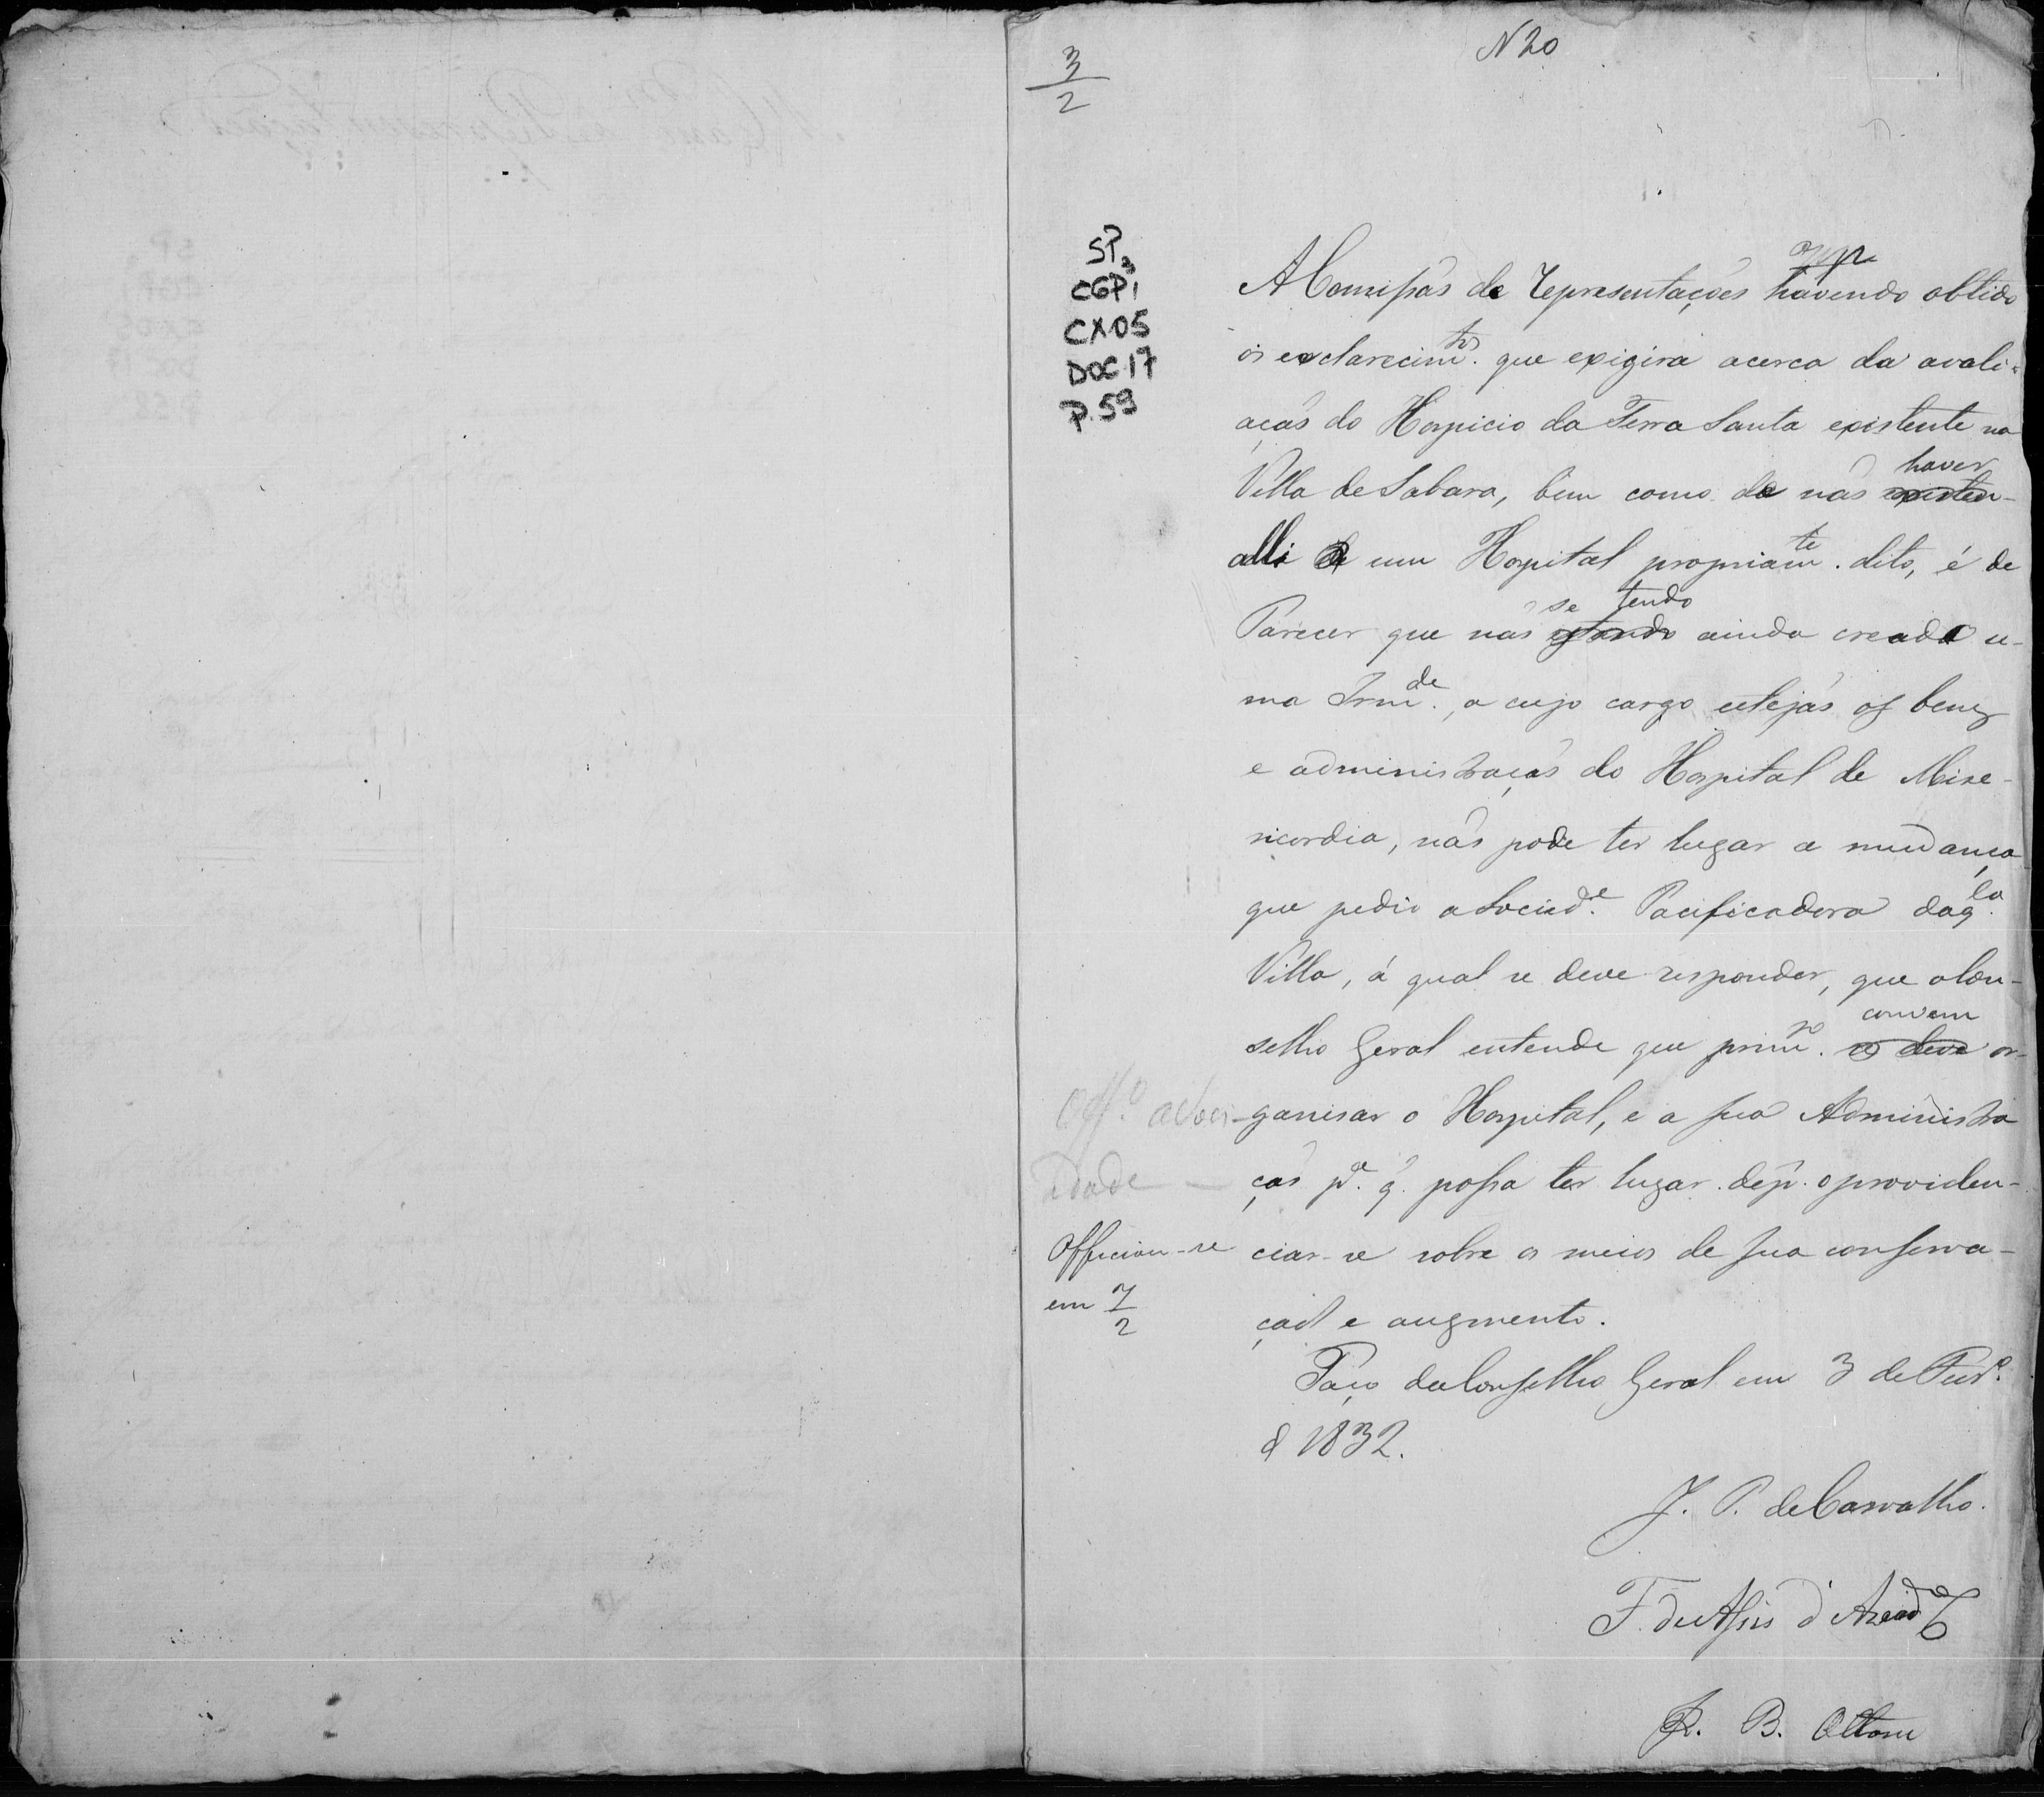 N 20
3
2
SP,
CGP1
CX05
DOC 17
P. 59
A Comissaõ de Representações havendo obtido
os esclarecim.tos que exigira acerca da avali-
açaõ do Hospicio da Terra Santa existente na
haver
Villa de Sabara, bem como de naõ existen-
alli um Hospital propriam.te dito, é de
se tendo
Parecer que naõ estando ainda creado u-
ma Irm.de, a cujo cargo estejaõ os bens
e administraçaõ do Hospital de Mise-
ricordia, naõ pode ter lugar a mudança
que pedio a Socied.e Pacificadora daq.la
Villa, á qual se deve responder, que o Con-
convem
selho Geral entende que prim.ro se deve or-
ganisar o Hospital, e a sua Administra
çaõ p.a q. possa ter lugar dep. o providen-
ciar-se sobre os meios de sua conserva-
çaõ e augmento.
Off.o a Soci-
edade -
Officiou-se
em 7
2
Paço do Conselho Geral em 3 de Fevr.o
d 1832.
J. P. de Carvalho.
F. de Assis d'Azeid
R. B. Ottoni